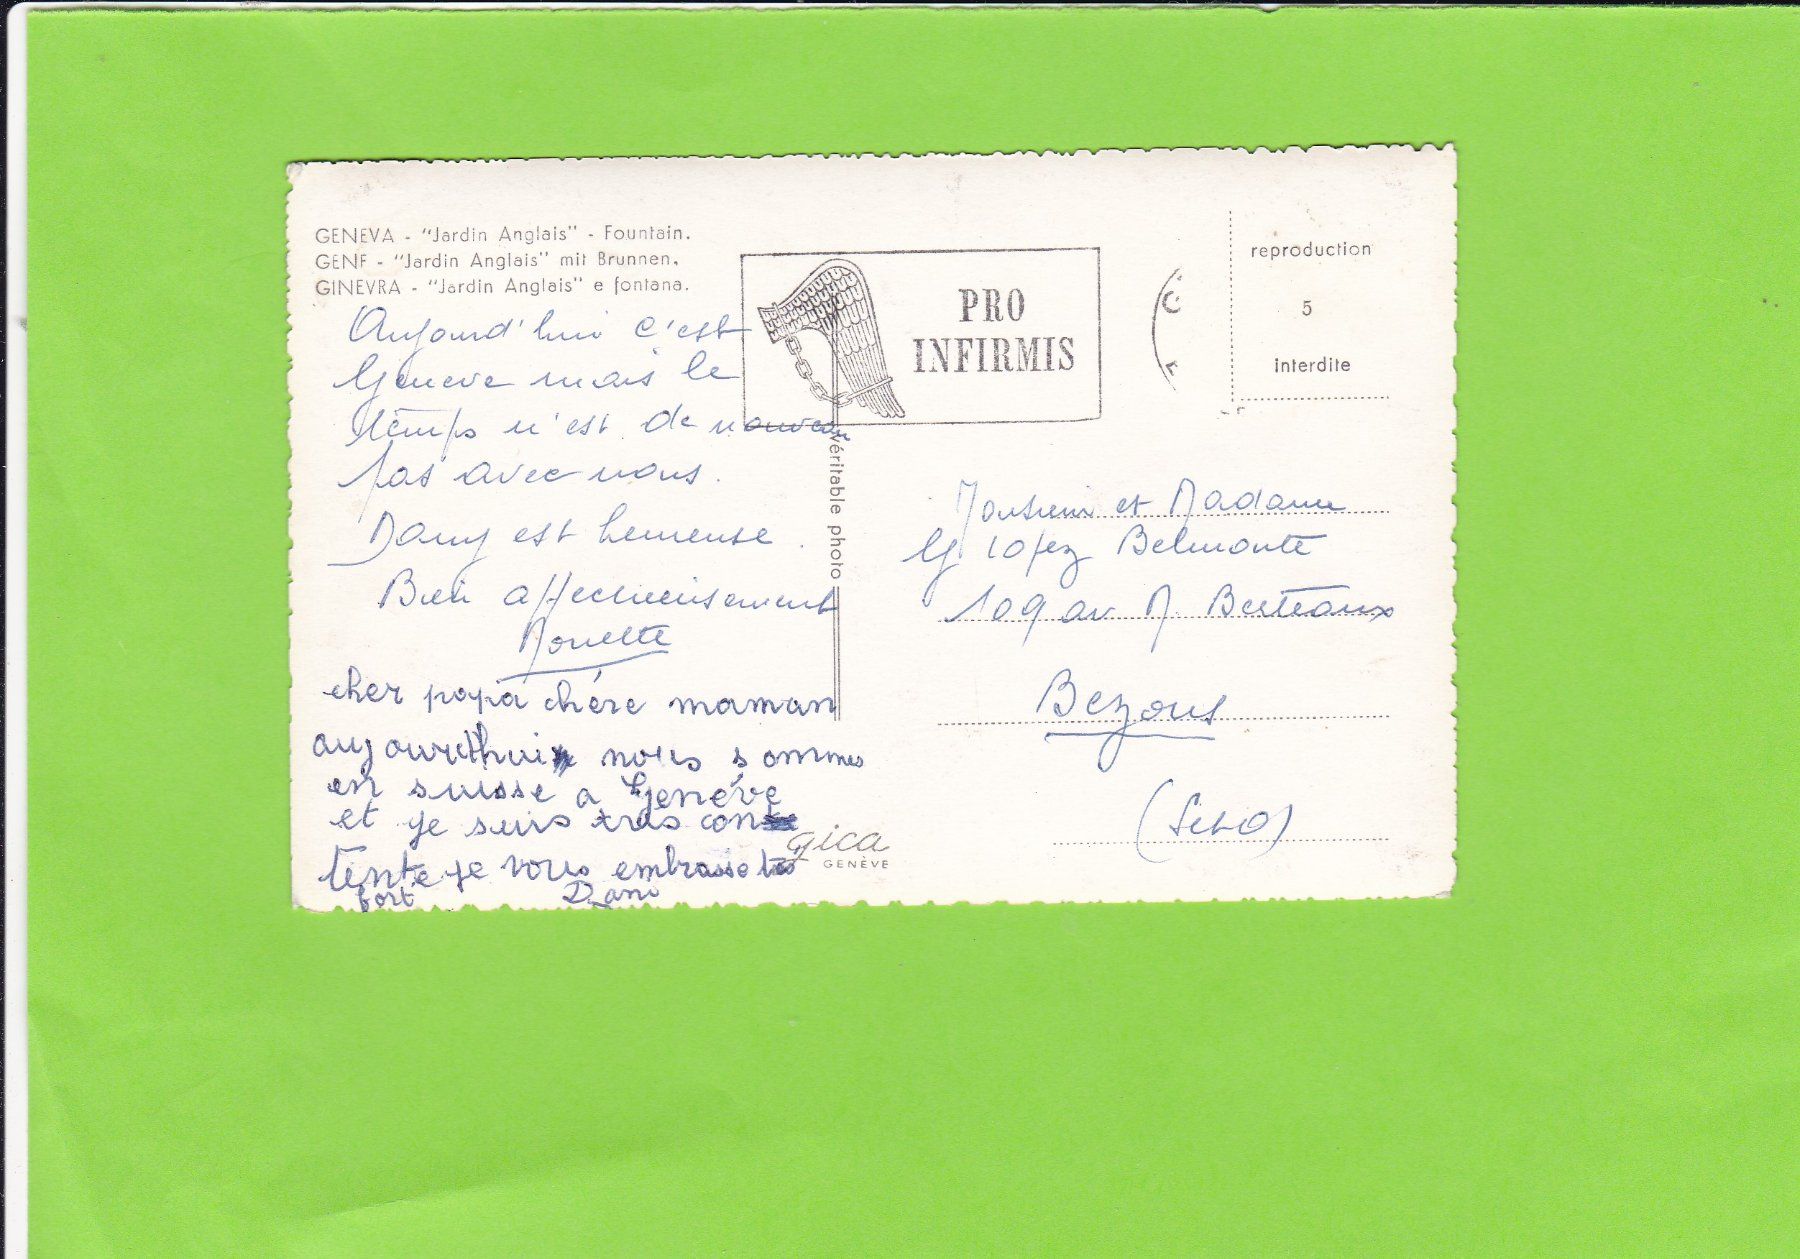 GENEVA - "Jardin Anglais" - Fountain.
GENF - "Jardin Anglais" mit Brunnen.
GINEVRA - "Jardin Anglais" e fontana.
Aujourd'hui c'est
Genève mais le
temps n'est de nouveau
pas avec nous.
Dany est heureuse.
Bien affectueusement
cher papa chère maman
aujourdhui nous sommes
en suisse a Genéve
et je suis tres con
tente je vous embrasse tres
fort Dani
PRO
INFIRMIS
véritable photo
gica
GENÈVE
reproduction
5
interdite
Monsieur et Madame
G Lopez Belmonte
109 av M. Berteaux
Bezons
(S et O)